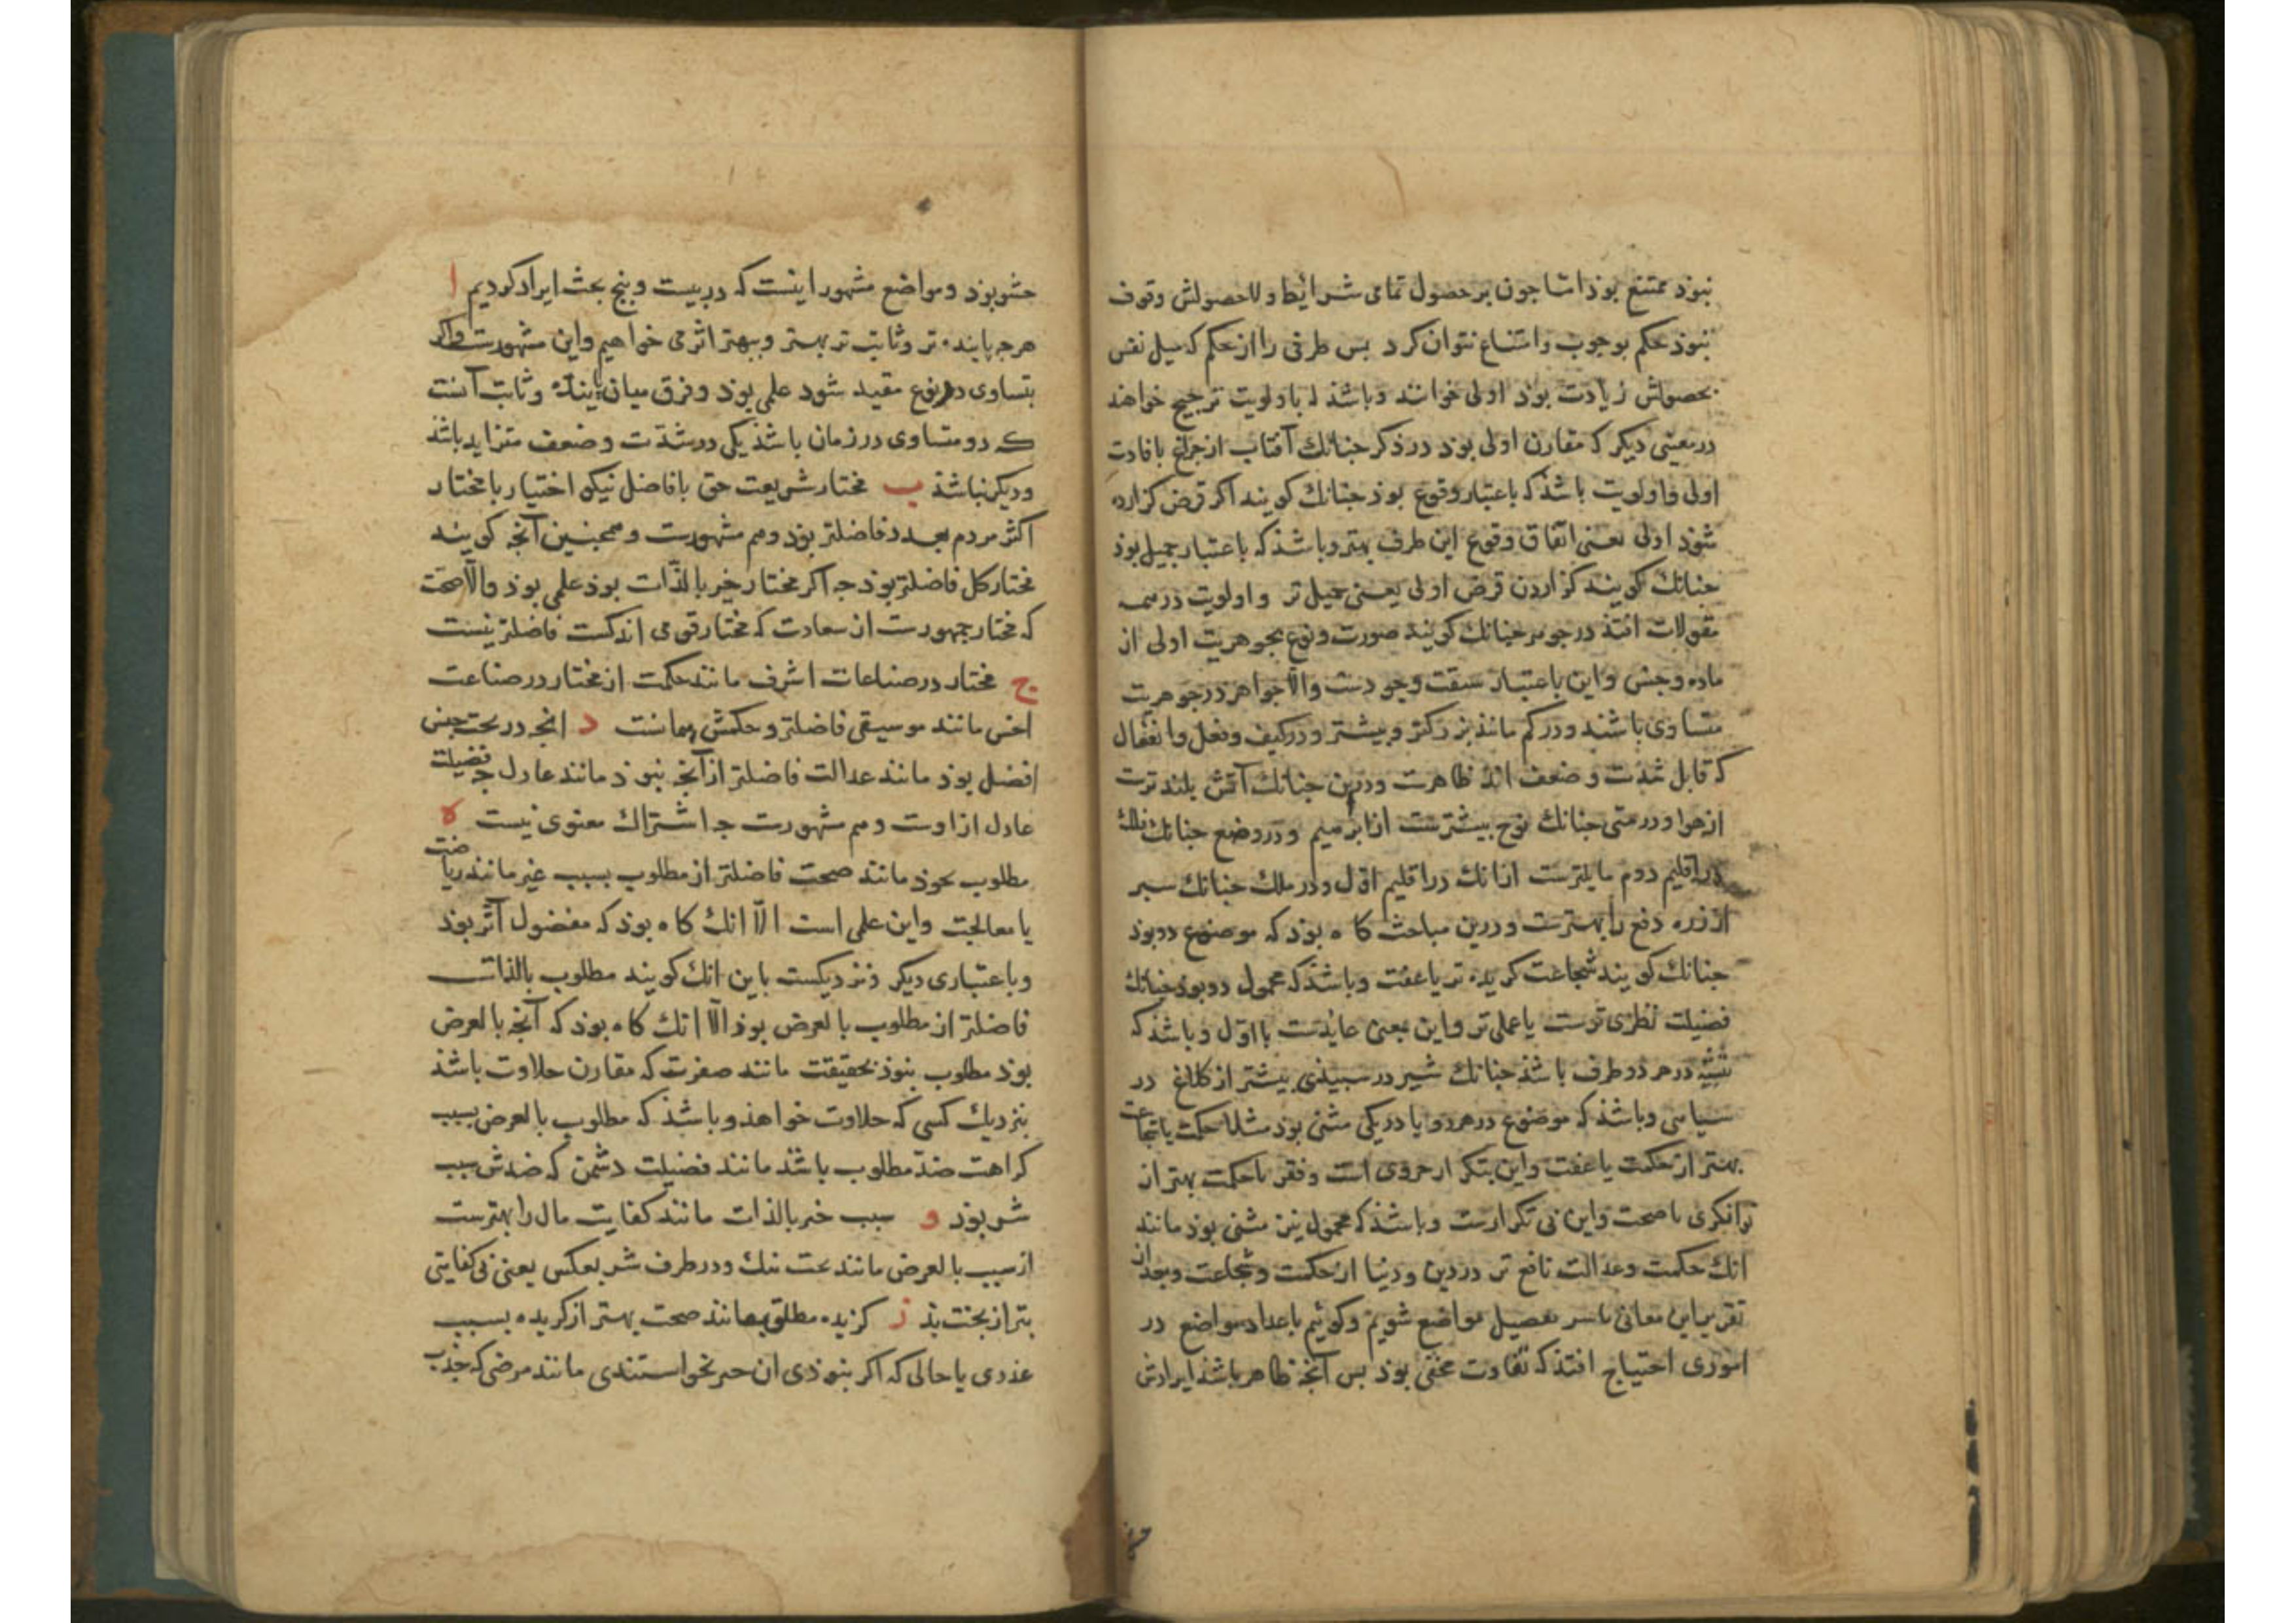 نبوذ ممتنع بوذ اما جون بر حصول تمامی شرایط و لاحصولش وقوف
نبوذ حکم بوجوب و امتناع نتوان کرد بس طرفی را از حکم که میل نفس
بحصولش زیادت بوذ اولی خوانند و باشذ که باولویت ترجیح خواهند
در معنیی دیکر که مقارن اولی بوذ در ذکر جنانك آفتاب از جراغ بافادت
اولی و اولویت باشذ که باعتبار وقوع بوذ جنانك کویند اکر قرض کزارده
شوذ اولی یعنی اتفاق وقوع این طرف بهتر و باشذ که باعتبار جمیل بوذ
جنانك کویند کزاردن قرض اولی یعنی جمیل تر و اولویت در همه
مقولات افتذ در جوهر جنانك کویند صورت و نوع بجوهریت اولی از
ماده و جنس و این باعتبار سبقت وجودست والا جواهر در جوهریت
متساوی باشند و در کم مانند بزرکتر و بیشتر و در کیف و فعل و انفعال
که قابل شدت و ضعف اند ظاهرست و در این جنانك آتش بلندترست
از هوا و در متی جنانك نوح بیشترست از ابرهیم و در وضع جنانك فلك
در اقلیم دوم مایلترست ازانك در اقلیم اول و در ملك جنانك سبر
از زره دفع را بهترست و درین مباحث کاه بوذ که موضوع دو بوذ
جنانك کویند شجاعت کزیده تر یا عفت و باشذ که محمول دو بوذ جنانك
فضیلت نظری ترست یا عملی تر و این بمعنی عایدست با اول و باشذ که
تثنیه در هر دو طرف باشذ جنانك شیر در سبیذی بیشتر از کلاغ در
سیاهی و باشذ که موضوع در هر دو یا در یکی مثنی بوذ مثلا حکمت یا شجاعت
بهتر از حکمت یا عفت و این بتکرار جزوی است و فقر با حکمت بهتر از
توانکری با صحت و این بی تکرارست و باشذ که محمول نیز مثنی بوذ مانند
انك حکمت و عدالت نافع تر در دین و دنیا از حکمت و شجاعت و بعد از
تقریر این معانی با سر تفصیل مواضع شویم و کوئیم باعداد مواضع در
اموری احتیاج افتذ که تفاوت مخفی بوذ بس آنجه ظاهر باشذ ایرادش
حشو بوذ و مواضع مشهور اینست که در بیست و بنج بحث ایراد کردیم ا
هرجه باینده تر و ثابت تر بهتر و ببهتر اثر می خواهیم و این مشهورست و اکر
بتساوی در نوع مقید شود علمی بوذ و فرق میان باینده و ثابت آنست
که دو متساوی در زمان باشذ یکی در شدت و ضعف متزاید باشذ
و دیکر نباشذ ب مختار شریعت حق یا فاضل نیکو اختیار یا مختار
اکثر مردم بعدد فاضلتر بوذ و هم مشهورست و همجنین آنجه کویند
مختار کل فاضلتر بوذ جه اکر مختار خیر بالذات بوذ علمی بوذ والا صحت
که مختار جمهورست از سعادت که مختار قومی اندکست فاضلتر نیست
ج مختار در صناعات اشرف مانند حکمت از مختار در صناعت
اخس مانند موسیقی فاضلتر و حکمش همانست د انجه در تحت جنس
افضل بوذ مانند عدالت فاضلتر از آنجه نبوذ مانند عادل جه فضیلت
عادل ازاوست و هم مشهورست جه اشتراك معنوی نیست ه
مطلوب بخوذ مانند صحت فاضلتر از مطلوب بسبب غیر مانند ریاضت
یا معالجت و این علمی است الا انك کاه بوذ که مفضول آثر بوذ
و باعتباری دیکر و نزدیکست باین انك کویند مطلوب بالذات
فاضلتر از مطلوب بالعرض بوذ الا انك کاه بوذ که آنجه بالعرض
بوذ مطلوب بنوذ بحقیقت مانند صفرت که مقارن حلاوت باشذ
بنزدیك کسی که حلاوت خواهذ و باشذ که مطلوب بالعرض بسبب
کراهت ضد مطلوب باشذ مانند فضیلت دشمن که ضدش سبب
شر بوذ و سبب خیر بالذات مانند کفایت مال را بهترست
از سبب بالعرض مانند بخت نیك و در طرف شر بعکس یعنی بی کفایتی
بتر از بخت بذ ز کزیده مطلق مانند صحت بهتر از کزیده بسبب
عذری یا حالی که اکر نبوذی ان حیز نخواستندی مانند مرضی که جذب